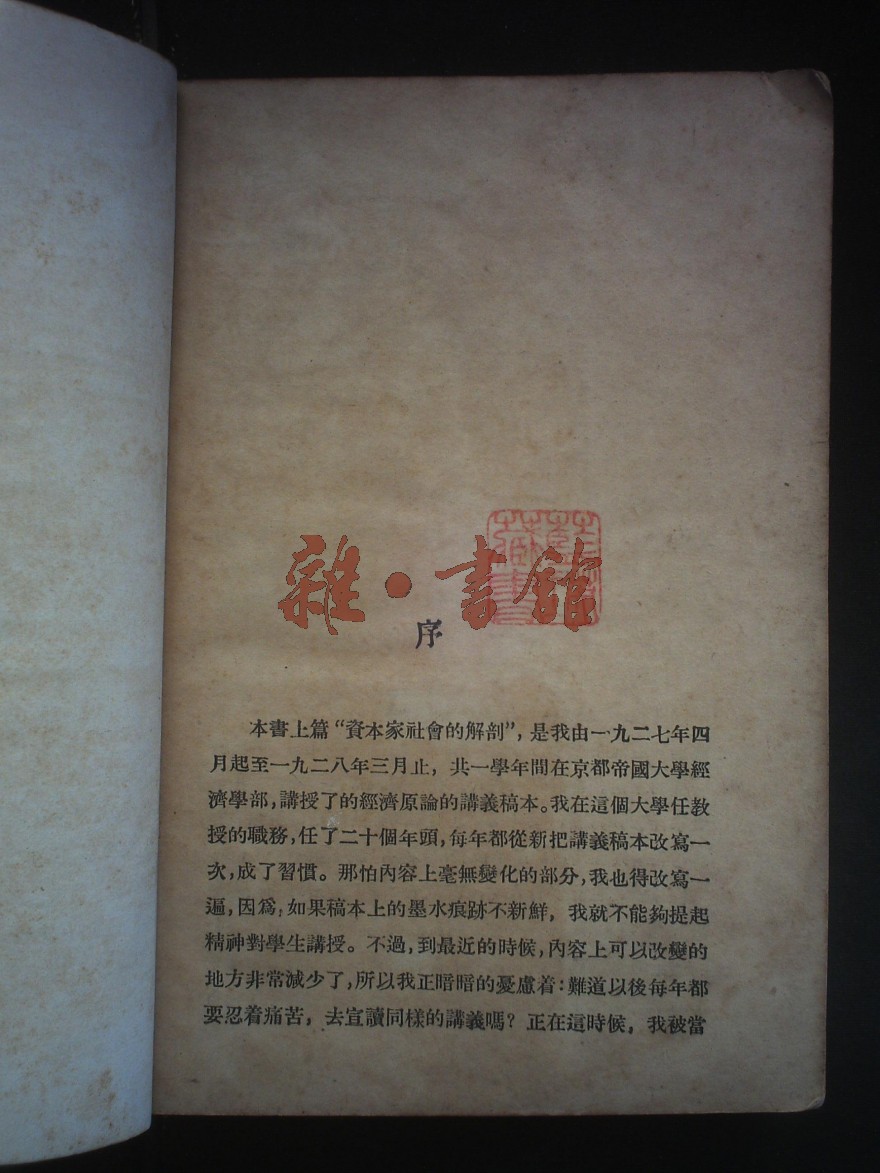 雜·書館
序
本書上篇“資本家社會的解剖”,是我由一九二七年四
月起至一九二八年三月止,共一學年間在京都帝國大學經
濟學部,講授了的經濟原論的講義稿本。我在這個大學任敎
授的職務,任了二十個年頭,每年都從新把講義稿本改寫一
次,成了習慣。那怕內容上毫無變化的部分,我也得改寫一
遍,因爲,如果稿本上的墨水痕跡不新鮮,我就不能夠提起
精神對學生講授。不過,到最近的時候,內容上可以改變的
地方非常減少了,所以我正暗暗的憂慮着:難道以後每年都
要忍着痛苦,去宣讀同樣的講義嗎?正在這時候,我被當